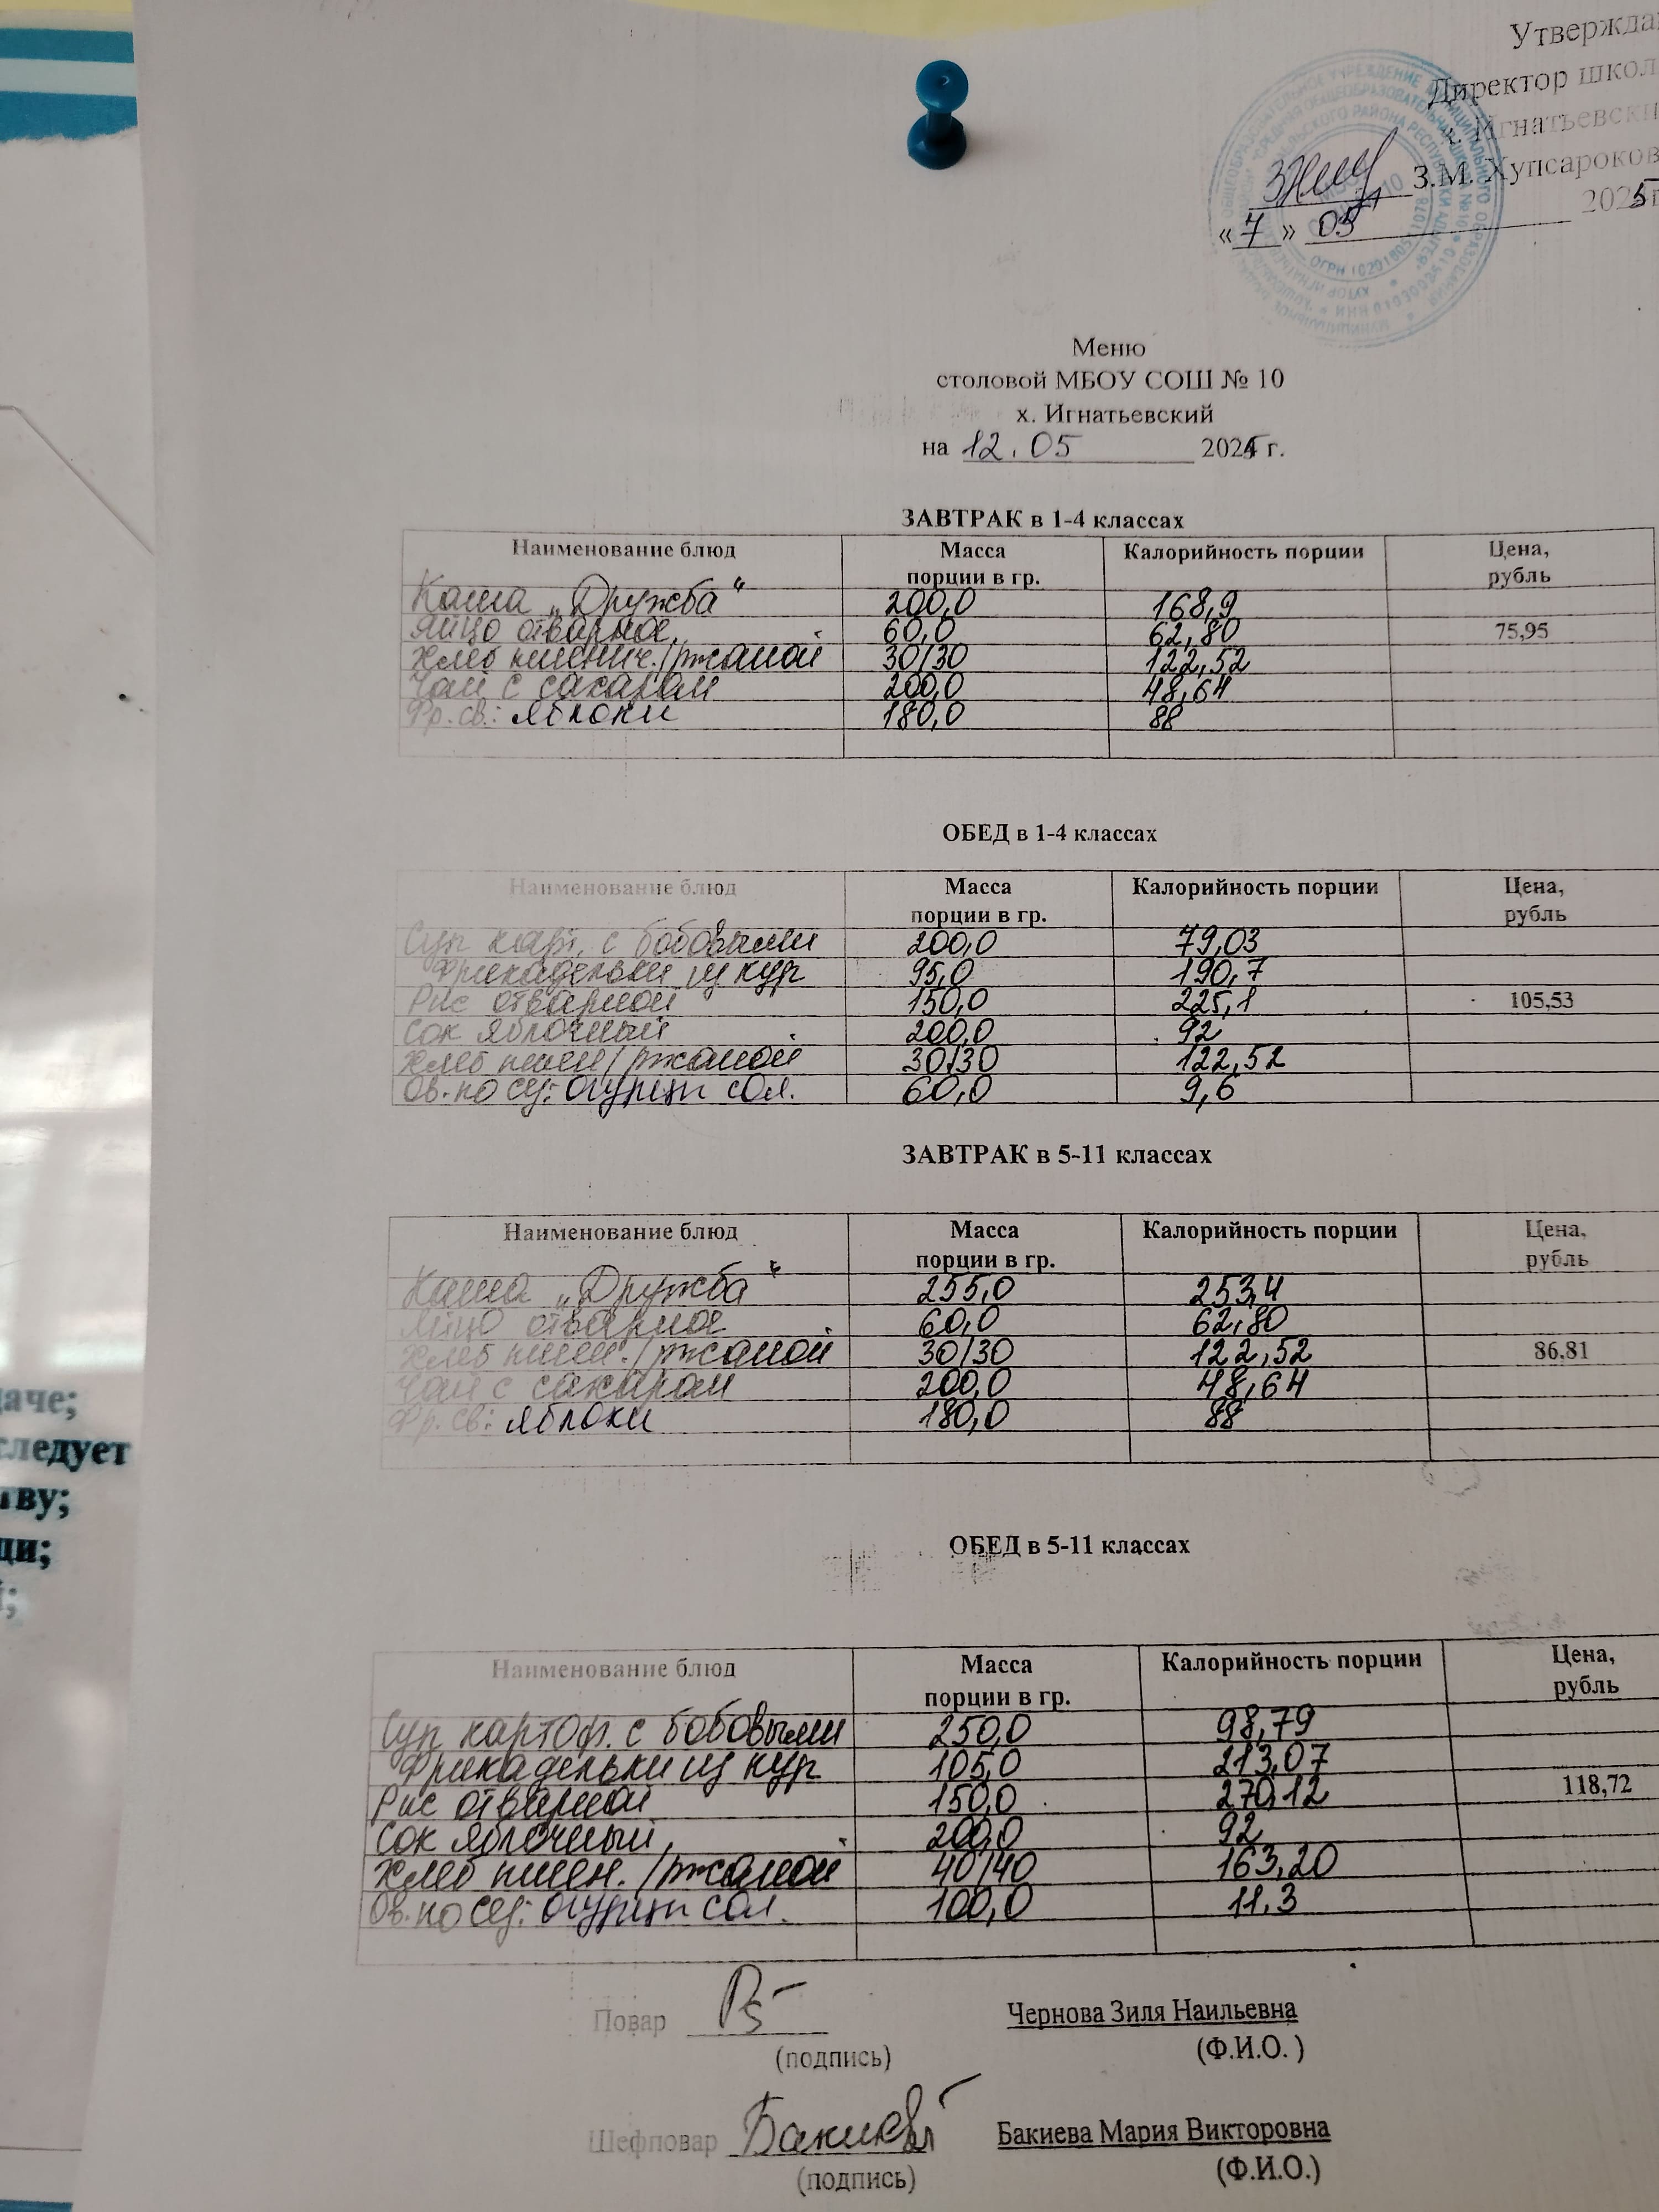 Утвержда
Директор школ
х. Игнатьевски
З.М. Хупсароков
«7» 05 2025 г
ОГРН 1020180511078
Меню
столовой МБОУ СОШ № 10
х. Игнатьевский
на 12.05 2025 г.
ЗАВТРАК в 1-4 классах
Наименование блюд Масса порции в гр. Калорийность порции Цена, рубль
Каша „Дружба“ 200,0 168,9
Яйцо отварное 60,0 62,80 75,95
Хлеб пшенич./ржаной 30/30 122,52
Чай с сахаром 200,0 48,64
Фр. св: яблоки 180,0 88
ОБЕД в 1-4 классах
Наименование блюд Масса порции в гр. Калорийность порции Цена, рубль
Суп карт. с бобовыми 200,0 79,03
Фрикадельки из кур 95,0 190,7
Рис отварной 150,0 225,1 105,53
Сок яблочный 200,0 92
Хлеб пшен/ржаной 30/30 122,52
Ов. по сез: огурцы сол. 60,0 9,6
ЗАВТРАК в 5-11 классах
Наименование блюд Масса порции в гр. Калорийность порции Цена, рубль
Каша „Дружба“ 255,0 253,4
Яйцо отварное 60,0 62,80
Хлеб пшен./ржаной 30/30 122,52 86,81
Чай с сахаром 200,0 48,64
Фр. св: яблоки 180,0 88
ОБЕД в 5-11 классах
Наименование блюд Масса порции в гр. Калорийность порции Цена, рубль
Суп картоф. с бобовыми 250,0 98,79
Фрикадельки из кур 105,0 213,07
Рис отварной 150,0 270,12 118,72
Сок яблочный 200,0 92
Хлеб пшен./ржаной 40/40 163,20
Ов. по сез: огурцы сол. 100,0 11,3
Повар Чернова Зиля Наильевна
(подпись) (Ф.И.О. )
Шефповар Бакиева Бакиева Мария Викторовна
(подпись) (Ф.И.О.)
даче;
следует
тву;
щи;